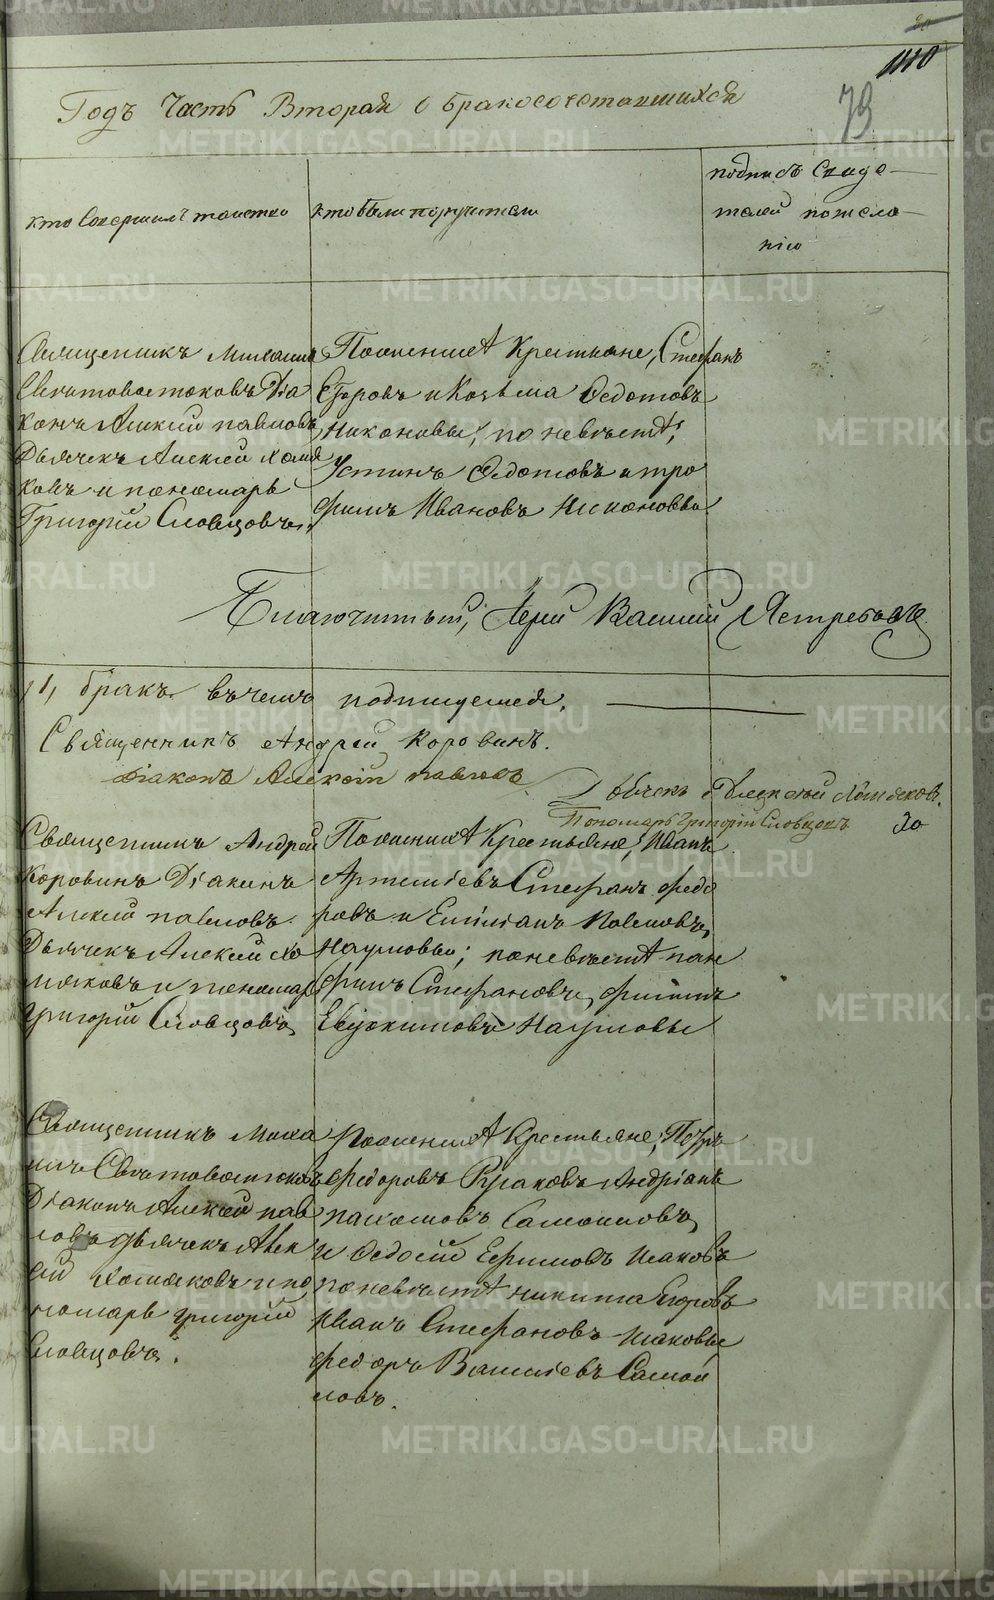 METRIKI.GASO-URAL.RU
110
79
Годъ Часть Вторая о бракосочетавшихся
кто совершилъ таинство
кто были поручители
подпись свиде-
телей по жела-
нію
Священникъ Михаилъ
Святовостоковъ Діа
конъ Алексій Павловъ
Дьячекъ Алексей Холмя
ковъ и пономарь
Григорій Словцовъ
По женихѣ Крестьяне, Стефанъ
Егоровъ и Козьма Федотовъ
Никоновы, по невѣстѣ,
Устинъ Федотовъ и тро
фимъ Ивановъ Никоновы
Благочинный, Іерей Василій Ястребовъ
бракъ въ чемъ подписуемся.
Священникъ Андрей Коровинъ.
діаконъ Алексій Павловъ
Дьячекъ Алексей
Пономарь Григорій Словцовъ
Священникъ Андрей
Коровинъ Діаконъ
Алексій Павловъ
Дьячекъ Алексей Хо
мяковъ и пономарь
Григорій Словцовъ
По женихѣ Крестьяне, Иванъ
Артемьевъ Стефанъ Федо
ровъ и Емиліанъ Павловъ,
Наумовы; по невѣстѣ пан
филъ Стефановъ, филипъ
Евдокимовъ Наумовы
Священникъ Миха
илъ Святовостоковъ
Діаконъ Алексей Пав
ловъ дьячекъ Алек
сей Хомяковъ и по
номарь Григорій
Словцовъ.
По женихѣ Крестьяне, Петръ
Федоровъ Андріанъ
Пахомовъ Самоиловъ,
и Федосій Ефимовъ Исаковъ
по невѣстѣ Никита Егоровъ
Иванъ Стефановъ Исаковы
Федоръ Васильевъ Самои
ловъ.